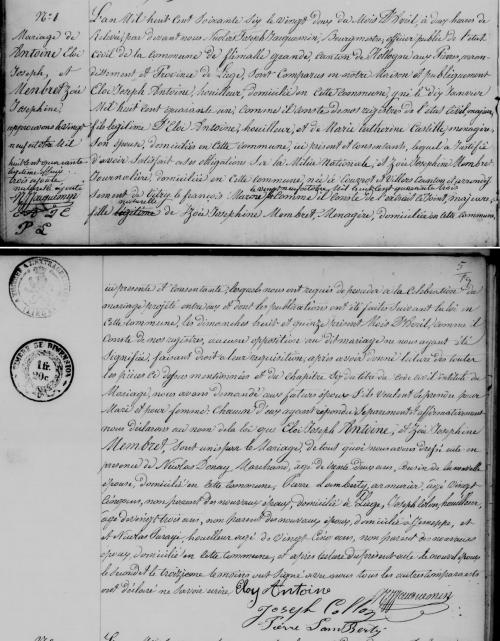 N° 1
Mariage de
Antoine Eloi
Joseph, et
Membret Zoé
Joséphine.
approuvons vingt
neuf octobre mil
huit cent quarante
trois
L'an Mil huit cent soixante six le vingt deux du Mois d'Avril, à deux heures de
Relevée, par devant nous Nicolas Joseph Jacquemin, Bourgmestre, officier public de l'état
civil de la commune de flémalle grande, canton de Hollogne aux Pierres, arron-
dissement et Province de Liège, sont comparus en notre Maison et publiquement
Eloi Joseph Antoine, houilleur, domicilié en cette commune, né le dix janvier
Mil huit cent quarante un, comme il conste de nos registres de l'état civil, majeur,
fils légitime d'Eloi Antoine, houilleur, et de Marie Catherine Castille, ménagère,
son épouse, domiciliés en cette commune, ici présent et consentants, lequel a justifié
d'avoir satisfait à ses obligations sur la Milice Nationale, et Zoé Joséphine Membret
Journalière, domiciliée en cette commune, née à
le vingt neuf octobre mil huit cent quarante trois
comme il conste de l'extrait ci-joint, majeure,
naturelle
fille légitime de Zoé Joséphine Membret, Ménagère, domiciliée en cette commune
ici présente et consentante; lesquels nous ont requis de procéder à la célébration du
mariage projeté entre eux et dont les publications ont été faites suivant la loi en
cette commune, les dimanches huit et quinze présent Mois d'Avril, comme il
conste de nos registres, aucune opposition au dit mariage ne nous ayant été
signifiée, faisant droit à leur réquisition, après avoir donné lecture de toutes
les pièces ci dessus mentionnées et du chapitre six du titre du code civil intitulé du
Mariage, nous avons demandé aux futurs époux s'ils veulent se prendre pour
Mari et pour femme: chacun d'eux ayant répondu séparément et affirmativement
nous déclarons au nom de la loi que Eloi Joseph Antoine, et Zoé Joséphine
Membret, sont unis par le Mariage, de tout quoi nous avons dressé acte en
présence de Nicolas Donay Marchand, âgé de trente deux ans,
époux, domicilié en cette commune, Pierre Lamberty, armurier, âgé vingt
cinq ans, non parent des nouveaux époux, domicilié à Liège, Joseph Colon, houilleur,
âgé de vingt trois ans, non parent des nouveaux époux, domicilié à Jemeppe, et
et Nicolas houilleur âgé de vingt cinq ans, non parent des nouveaux
époux, domicilié en cette commune, et après lecture du présent acte
le second et le troisième témoins ont signé avec nous, tous les autres comparants
ont déclaré ne savoir écrire. Eloy Antoine
Joseph Collon
Pierre Lamberty
Jacquemin